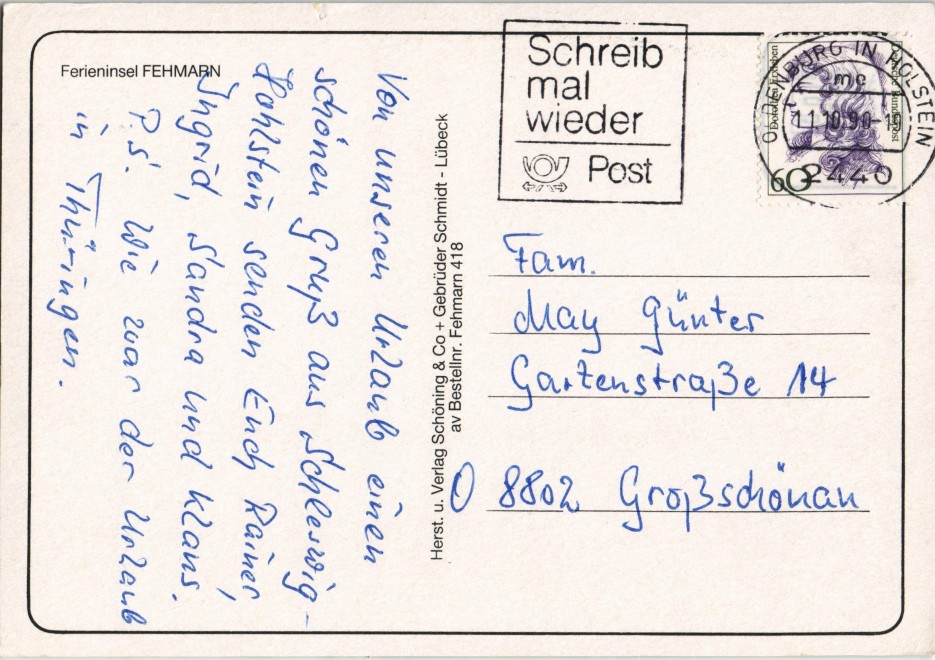 Ferieninsel FEHMARN
Von unseren Urlaub einen
schönen Gruß aus Schleswig-
Hohlstein senden Euch Rainer,
Ingrid, Sandra und Klaus.
P.S. Wie war der Urlaub
in Thüringen.
Herst. u. Verlag Schöning & Co + Gebrüder Schmidt - Lübeck
av Bestellnr. Fehmarn 418
Schreib
mal
wieder
Post
OLDENBURG IN HOLSTEIN
mc
11.10.90-15
2440
60
Fam.
May Günter
Gartenstraße 14
O 8802 Großschönau